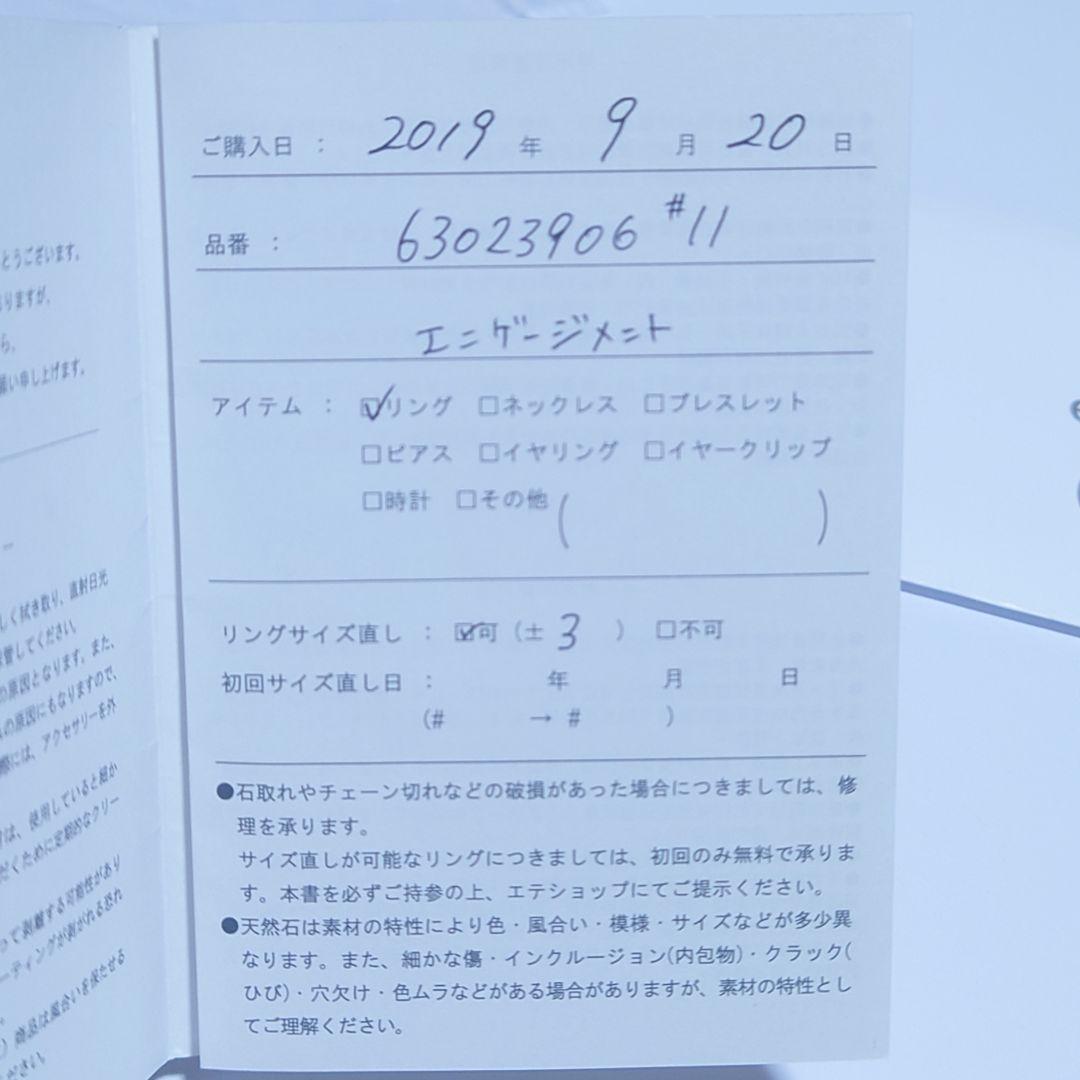 とうございます。
りますが、
ら、
願い申し上げます。
しく拭き取り、直射日光
管してください。
の原因となります。また、
の原因にもなりますので、
際には、アクセサリーを外
は、使用していると細か
だくために定期的なクリー
って剥離する可能性があり
ーティングが剥がれる恐れ
商品は風合いを保たせる
ださい。
ご購入日 : 2019 年 9 月 20 日
品番 : 63023906 #11
エニゲージメント
アイテム : ☑リング □ネックレス □ブレスレット
□ピアス □イヤリング □イヤークリップ
□時計 □その他 ( )
リングサイズ直し : ☑可 (± 3 ) □不可
初回サイズ直し日 : 年 月 日
(# → # )
●石取れやチェーン切れなどの破損があった場合につきましては、修
理を承ります。
サイズ直しが可能なリングにつきましては、初回のみ無料で承りま
す。本書を必ずご持参の上、エテショップにてご提示ください。
●天然石は素材の特性により色・風合い・模様・サイズなどが多少異
なります。また、細かな傷・インクルージョン(内包物)・クラック(
ひび)・穴欠け・色ムラなどがある場合がありますが、素材の特性とし
てご理解ください。